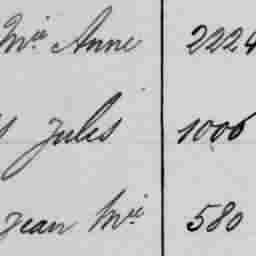 Mie Anne 2224
Jules 1006
Jean Mie 580